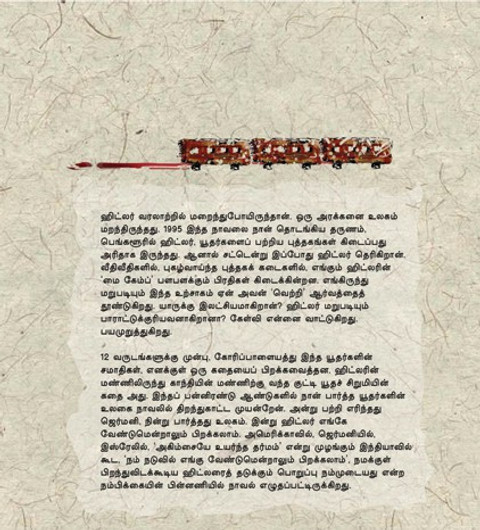 ஹிட்லர் வரலாற்றில் மறைந்துபோயிருந்தான். ஒரு அரக்கனை உலகம்
மறந்திருந்தது. 1995 இந்த நாவலை நான் தொடங்கிய தருணம்,
பெங்களூரில் ஹிட்லர், யூதர்களைப் பற்றிய புத்தகங்கள் கிடைப்பது
அரிதாக இருந்தது. ஆனால் சட்டென்று இப்போது ஹிட்லர் தெரிகிறான்.
வீதிவீதிகளில், புகழ்வாய்ந்த புத்தகக் கடைகளில், எங்கும் ஹிட்லரின்
'மை கேம்ப்' பளபளக்கும் பிரதிகள் கிடைக்கின்றன. எங்கிருந்து
மறுபடியும் இந்த உற்சாகம் ஏன் அவன் 'வெற்றி' ஆர்வத்தைத்
தூண்டுகிறது. யாருக்கு இலட்சியமாகிறான்? ஹிட்லர் மறுபடியும்
பாராட்டுக்குரியவனாகிறானா? கேள்வி என்னை வாட்டுகிறது.
பயமுறுத்துகிறது.
12 வருடங்களுக்கு முன்பு, கோரிப்பாளையத்து இந்த யூதர்களின்
சமாதிகள், எனக்குள் ஒரு கதையைப் பிறக்கவைத்தன. ஹிட்லரின்
மண்ணிலிருந்து காந்தியின் மண்ணிற்கு வந்த குட்டி யூதச் சிறுமியின்
கதை அது. இந்தப் பன்னிரண்டு ஆண்டுகளில் நான் பார்த்த யூதர்களின்
உலகை நாவலில் திறந்துகாட்ட முயன்றேன். அன்று பற்றி எரிந்தது
ஜெர்மனி, நின்று பார்த்தது உலகம். இன்று ஹிட்லர் எங்கே
வேண்டுமென்றாலும் பிறக்கலாம். அமெரிக்காவில், ஜெர்மனியில்,
இஸ்ரேலில், 'அகிம்சையே உயர்ந்த தர்மம்' என்று முழங்கும் இந்தியாவில்
கூட, 'நம் நடுவில் எங்கு வேண்டுமென்றாலும் பிறக்கலாம்', நமக்குள்
பிறந்துவிடக்கூடிய ஹிட்லரைத் தடுக்கும் பொறுப்பு நம்முடையது என்ற
நம்பிக்கையின் பின்னணியில் நாவல் எழுதப்பட்டிருக்கிறது.